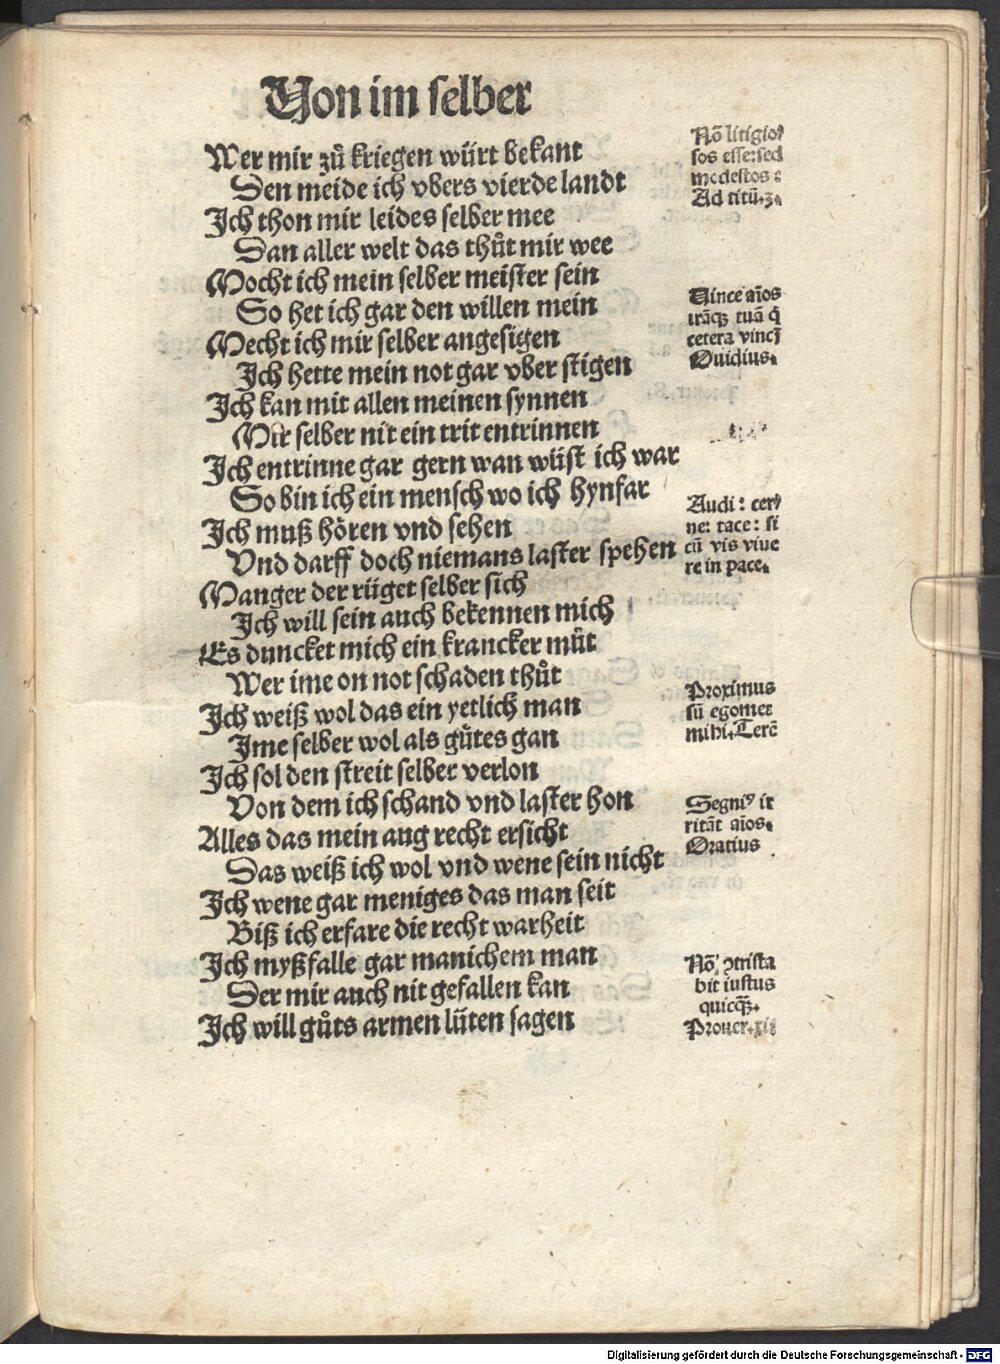 Von im selber
Wer mir zů kriegen würt bekant
Den meide ich vbers vierde landt
Ich thon mir leides selber mee
Dan aller welt das thůt mir wee
Mocht ich mein selber meister sein
So het ich gar den willen mein
Mecht ich mir selber angesigen
Ich hette mein not gar vber stigen
Ich kan mit allen meinen synnen
Mir selber nit ein trit entrinnen
Ich entrinne gar gern wan wüst ich war
So bin ich ein mensch wo ich hynfar
Ich muß hören vnd sehen
Vnd darff doch niemans laster spehen
Manger der rüget selber sich
Ich will sein auch bekennen mich
Es duncket mich ein krancker můt
Wer ime on not schaden thůt
Ich weiß wol das ein yetlich man
Ime selber wol als gůtes gan
Ich sol den streit selber verlon
Von dem ich schand vnd laster hon
Alles das mein aug recht ersicht
Das weiß ich wol vnd wene sein nicht
Ich wene gar meniges das man seit
Biß ich erfare die recht warheit
Ich myßfalle gar manichem man
Der mir auch nit gefallen kan
Ich will gůts armen lüten sagen
Nō litigioꝰ
sos esse:sed
modestos :
Ad titū.3.
Vince aīos
irāqꝫ tuā q̄
cetera vincī
Ouidius.
Audi : cerꝰ
ne: tace: si
cū vis viue
re in pace.
Proximus
sū egomet
mihi.Terē
Segniꝰ ir
ritāt aīos.
Oratius
Nō ꝯtrista
bit iustus
quicqꝫ.
Prouer.xii
Digitalisierung gefördert durch die Deutsche Forschungsgemeinschaft - DFG